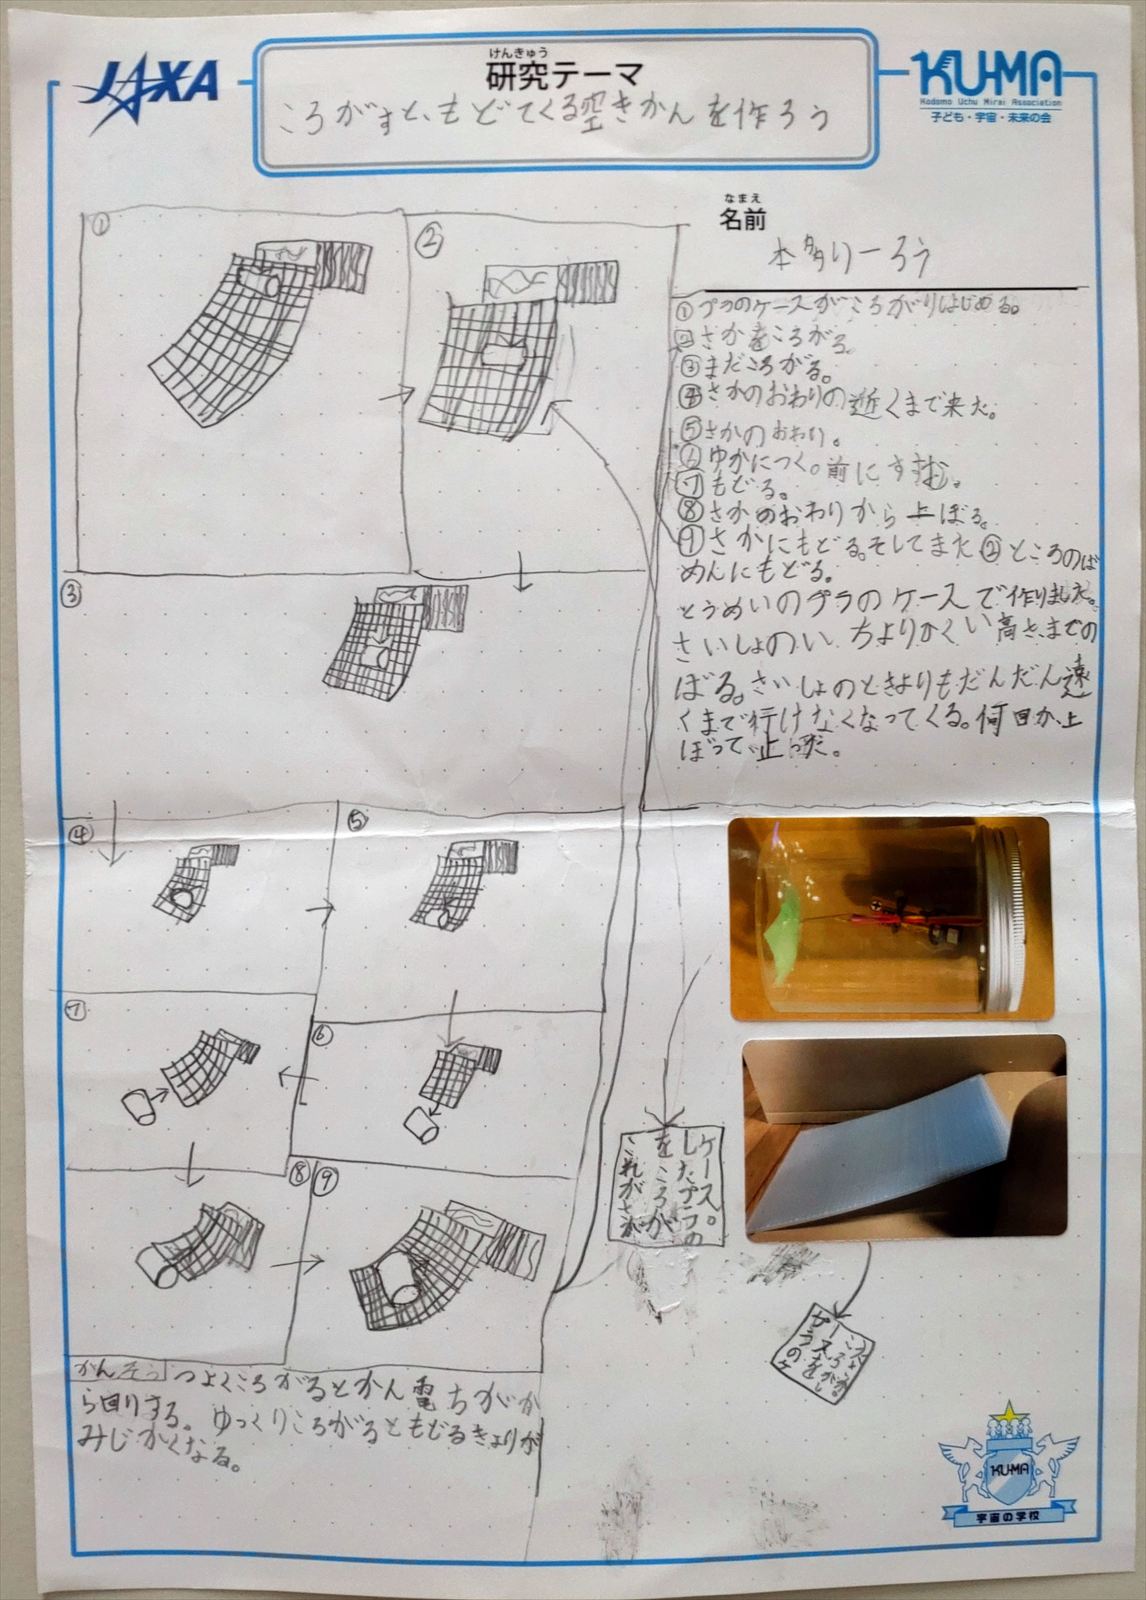 JAXA
けんきゅう
研究テーマ
ころがすと、もどてくる空きかんを作ろう
KU-MA
Kodomo Uchu Mirai Association
子ども・宇宙・未来の会
なまえ
名前
本多りーろう
①プラのケースがころがりはじめる。
②さかをころがる。
③まだころがる。
④さかのおわりの近くまで来た。
⑤さかのおわり。
⑥ゆかにつく。前にすすむ。
⑦もどる。
⑧さかのおわりから上ぼる。
⑨さかにもどる。そしてまた②ところのば
めんにもどる。
とうめいのプラのケースで作りました。
さいしょのいちよりかくい高さまでの
ぼる。さいしょのときよりもだんだん遠
くまで行けなくなってくる。何回か上
ぼって、止った。
①
②
③
④
⑤
⑦
⑥
⑧
⑨
これがさか
をころが
したプラの
ケース。
かんそう
つよくころがるとかん電ちがか
ら回りする。ゆっくりころがるともどるきょりが
みじかくなる。
KU-MA
宇宙の学校